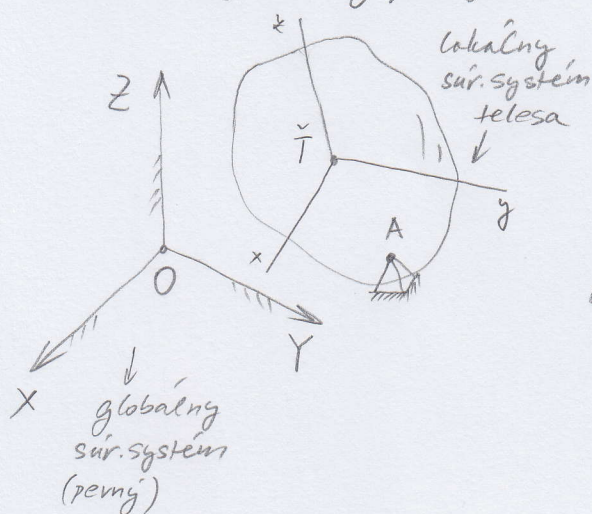 z
lokálny
súr.systém
telesa
Z
Ť
y
A
x
O
Y
X
globálny
súr.systém
(pevný)